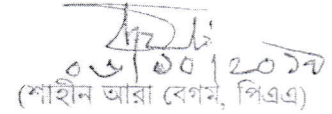 ০৬|১০|২০১৯
(শাহীন আরা বেগম, পিএএ)